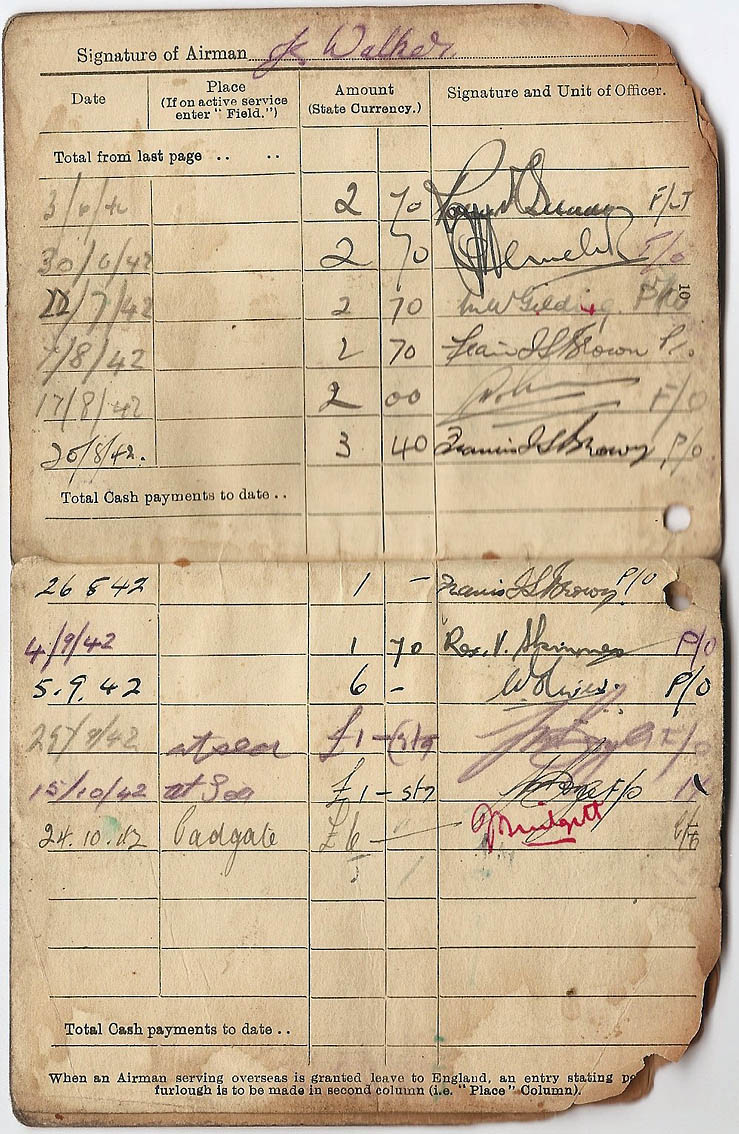 Signature of Airman Walker
Date Place Amount Signature and Unit of Officer.
(If on active service (State Currency.)
enter "Field.")
Total from last page .. ..
3/6/42 2 70 F/LT
30/6/42 2 70 F/O
10
/7/42 2 70 P/O
/8/42 2 70 Francis J S Brown P/O
17/8/42 2 00 F/O
20/8/42. 3 40 Francis J S Brown P/O
Total Cash payments to date ..
26 8 42 1 – Francis J S Brown P/O
4/9/42 1 70 Rex. V. Skinner P/O
5.9.42 6 – P/O
29/9/42 at sea £1 – Stg F/O
15/10/42 at Sea £1 – Stg F/O
24.10.42 Padgate £6 –
Total Cash payments to date ..
When an Airman serving overseas is granted leave to England, an entry stating
furlough is to be made in second column (i.e. "Place" Column).